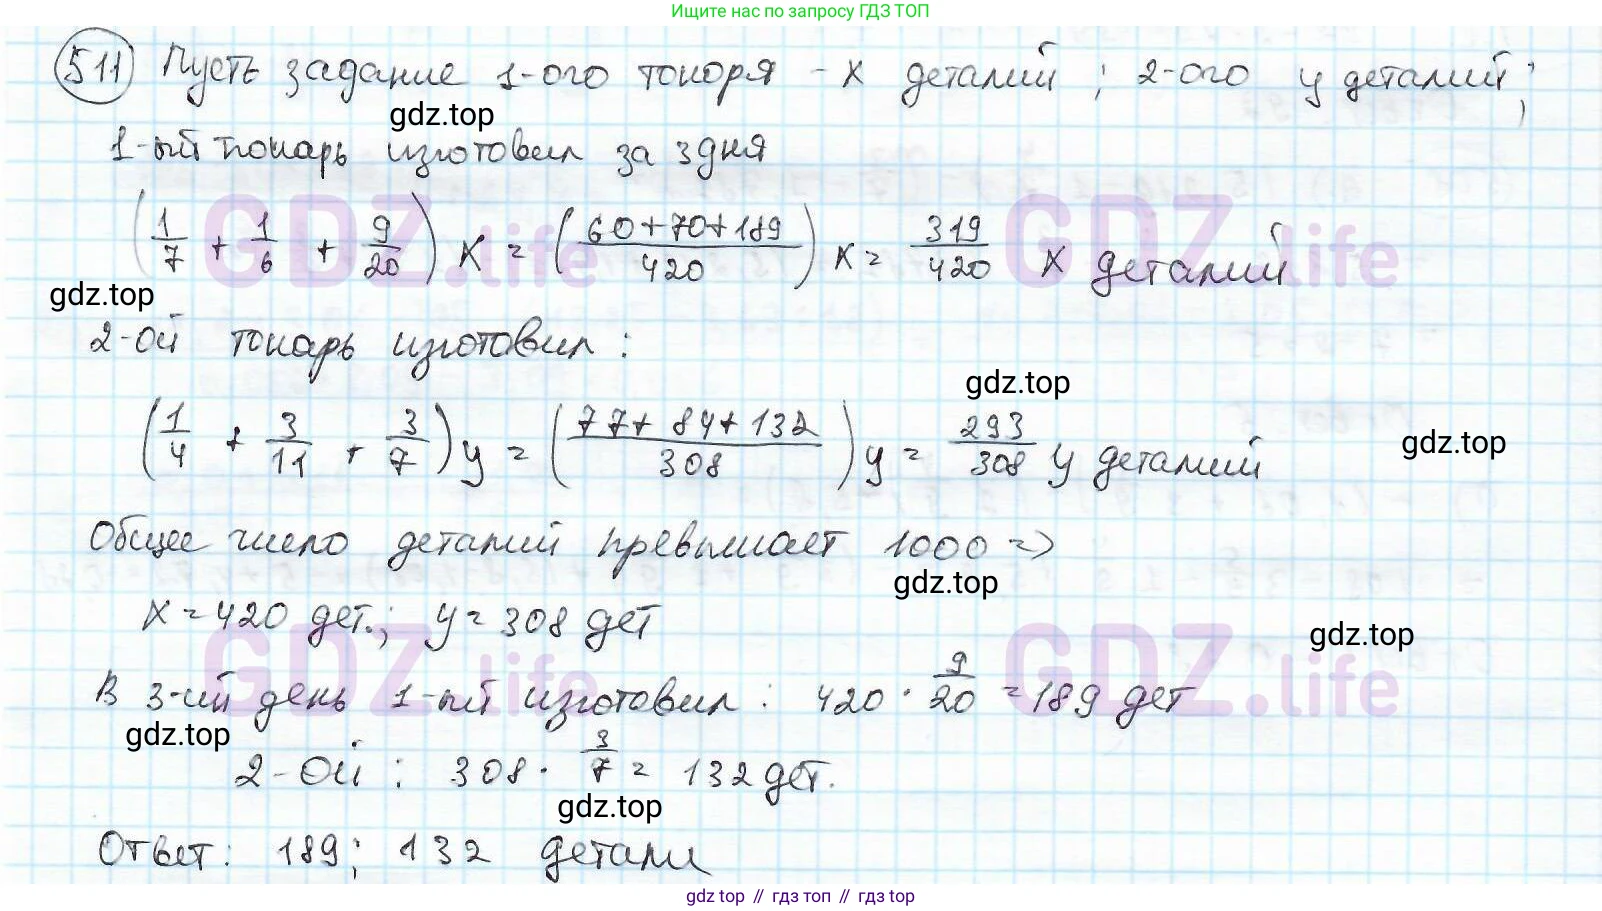 Ищите нас по запросу ГДЗ ТОП
511 Пусть задание 1-ого токоря - x деталий ; 2-ого y деталий ;
gdz.top
1-ый токарь изготовил за 3 дня
(1/7 + 1/6 + 9/20) x = ((60+70+189)/420) x = 319/420 x деталий
GDZ.life GDZ.life
gdz.top
2-ой токарь изготовил :
gdz.top
(1/4 + 3/11 + 3/7) y = ((77+84+132)/308) y = 293/308 y деталий
gdz.top
Общее число деталий превышает 1000 =>
gdz.top
x = 420 дет.; y = 308 дет
gdz.top
GDZ.life GDZ.life
В 3-ий день 1-ый изготовил : 420 · 9/20 = 189 дет
gdz.top
2-ой : 308 · 3/7 = 132 дет.
gdz.top
Ответ : 189 ; 132 детали
gdz top // гдз топ // гdz top